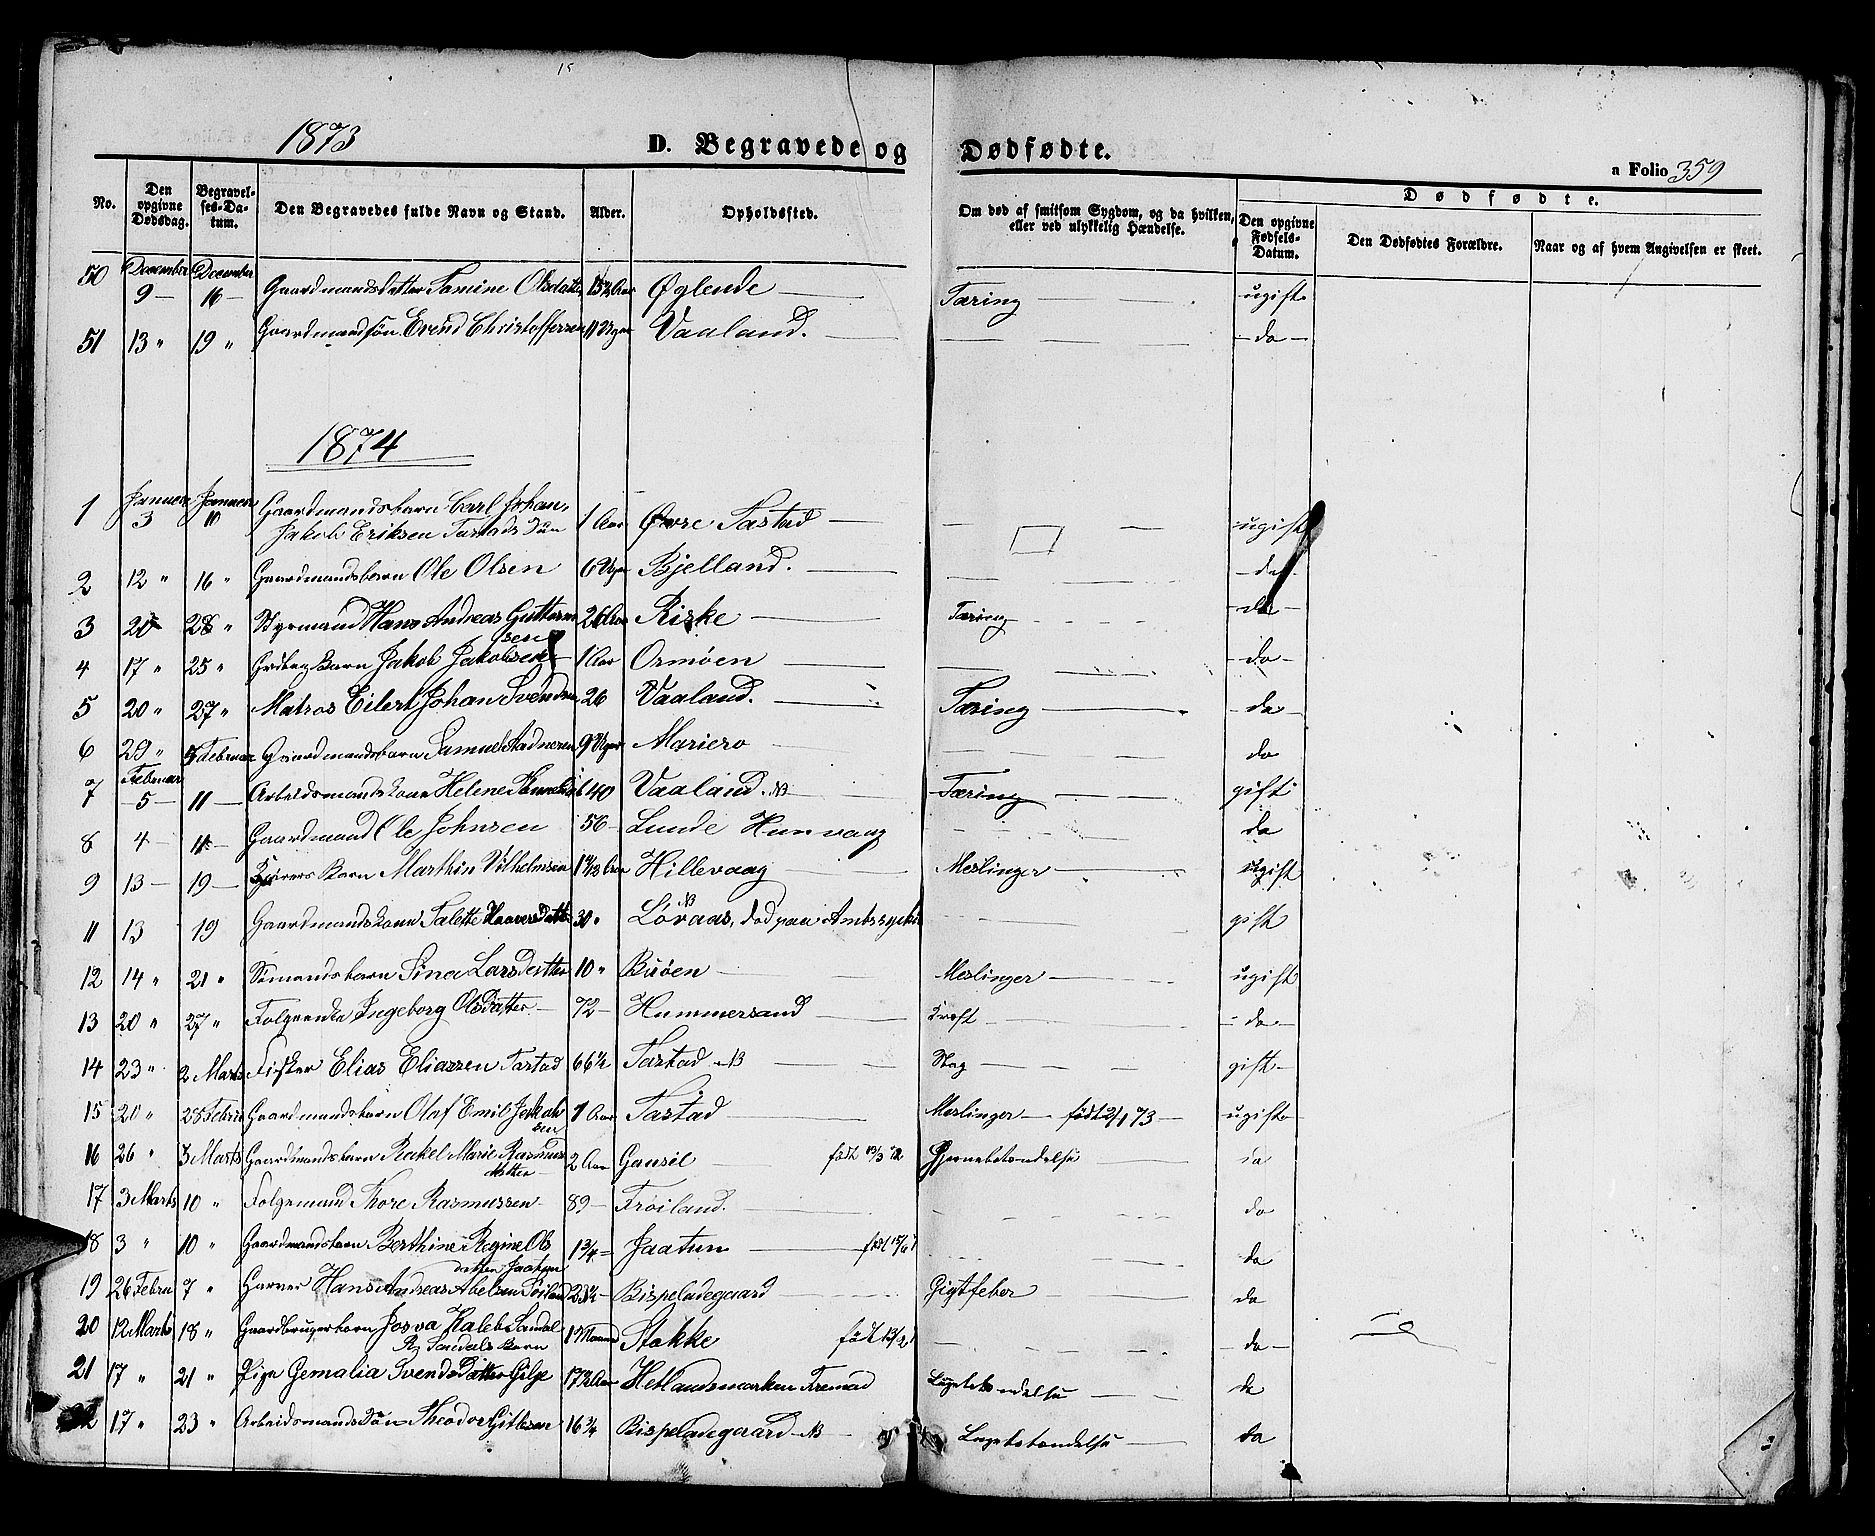 1873 D. Begravede og Dødfødte.
a Folio 359
No. Den opgivne Dødsdag. Begravelses-Datum. Den Begravedes fulde Navn og Stand. Alder. Opholdssted. Om død af smitsom Sygdom, og da hvilken, eller ved ulykkelig Hændelse. Dødfødte. Den opgivne Fødsels-Datum. Den Dødfødtes Forældre. Naar og af hvem Angivelsen er skeet.
50 December 9 — December 16 — Gaardmandsdatter Samine Olsdatter Øglende — Tæring — ugift
51 13 " 19 " Gaardmandssøn Erind Christoffersen 11 Uger Vaaland. — — da —
1874
1 Januar 3 Januar 10 Gaardmandsbarn Carl Johan
Jakob Eriksen Tastads Søn 1 Aar Øvre Tastad — ugift
2 12 " 16 " Gaardmandsbarn Ole Olsen 6 Uger Bjelland. — da —
3 20 28 " Styrmand Hans Andreas Guttorm
sen 26 Aar Riske — Tæring — da —
4 17 " 25 " Barn Jakob Jakobsen 1 Aar Ormøen — — da —
5 20 " 27 " Matros Eilert Johan Svendsen 26 Vaaland. — Tæring — da —
6 29 " 5 Februar Gaardmandsbarn Samuel Aadnesen 9 Uger Mariero — da
7 Februar 5 — 11 — Arbeidsmandskone Helene 40 Vaaland. NB — Tæring — gift
8 4 — 11 — Gaardmand Ole Johnsen 56 — Lunde Hunvaag — da
9 13 — 19 — Barn Marthin Vilhelmsen 1 Aar Hillevaag — Meslinger — ugift
11 13 19 Gaardmandskone Talette 30 " NB Løvaas, død paa Amtssyke — gift
12 14 " 21 " Sømandsbarn Sina Larsdatter 10 " Buøen — Meslinger — ugift
13 20 " 27 " Folgeenke Ingeborg Olsdatter — 72 — Hummersand — Kræft — da —
14 23 " 2 Marts Fisker Elias Eliassen Tastad 66½ Tastad NB — Slag — gift —
15 20 " 25 Februar Gaardmandsbarn Olaf Emil Jakob
sen 1 Aar Tastad — Meslinger — født 2/1 73 — ugift
16 26 " 3 Marts Gaardmandsbarn Rakel Marie Rasmus
datter 2 Aar Gausel — født 13/3 72 Hjernebetændelse — da
17 3 Marts 10 " Folgemand Thore Rasmussen — 89 — Frøiland. — da
18 3 " 10 " Gaardmandsbarn Berthine Regine Ols
datter Jaatun 1¾ — Jaatun — født — da
19 26 Februar 7 " Garver Hans Andreas Abelsen Bispeladegaard — Gigtfeber — da
20 12 Marts 18 " Gaardbrugerbarn Josva Kaleb Sandal
R. Sandals Barn 1 Maaned Stokke — født 12/2 — da —
21 17 " 21 " Pige Gemalia Svendsdatter Gilje 17½ Aar Hetlandsmarken Fremad Lungebetændelse — da
22 17 " 23 " Arbeidsmandssøn Theodor Gitlesen 16¾ Bispeladegaard NB — Lungebetændelse — da